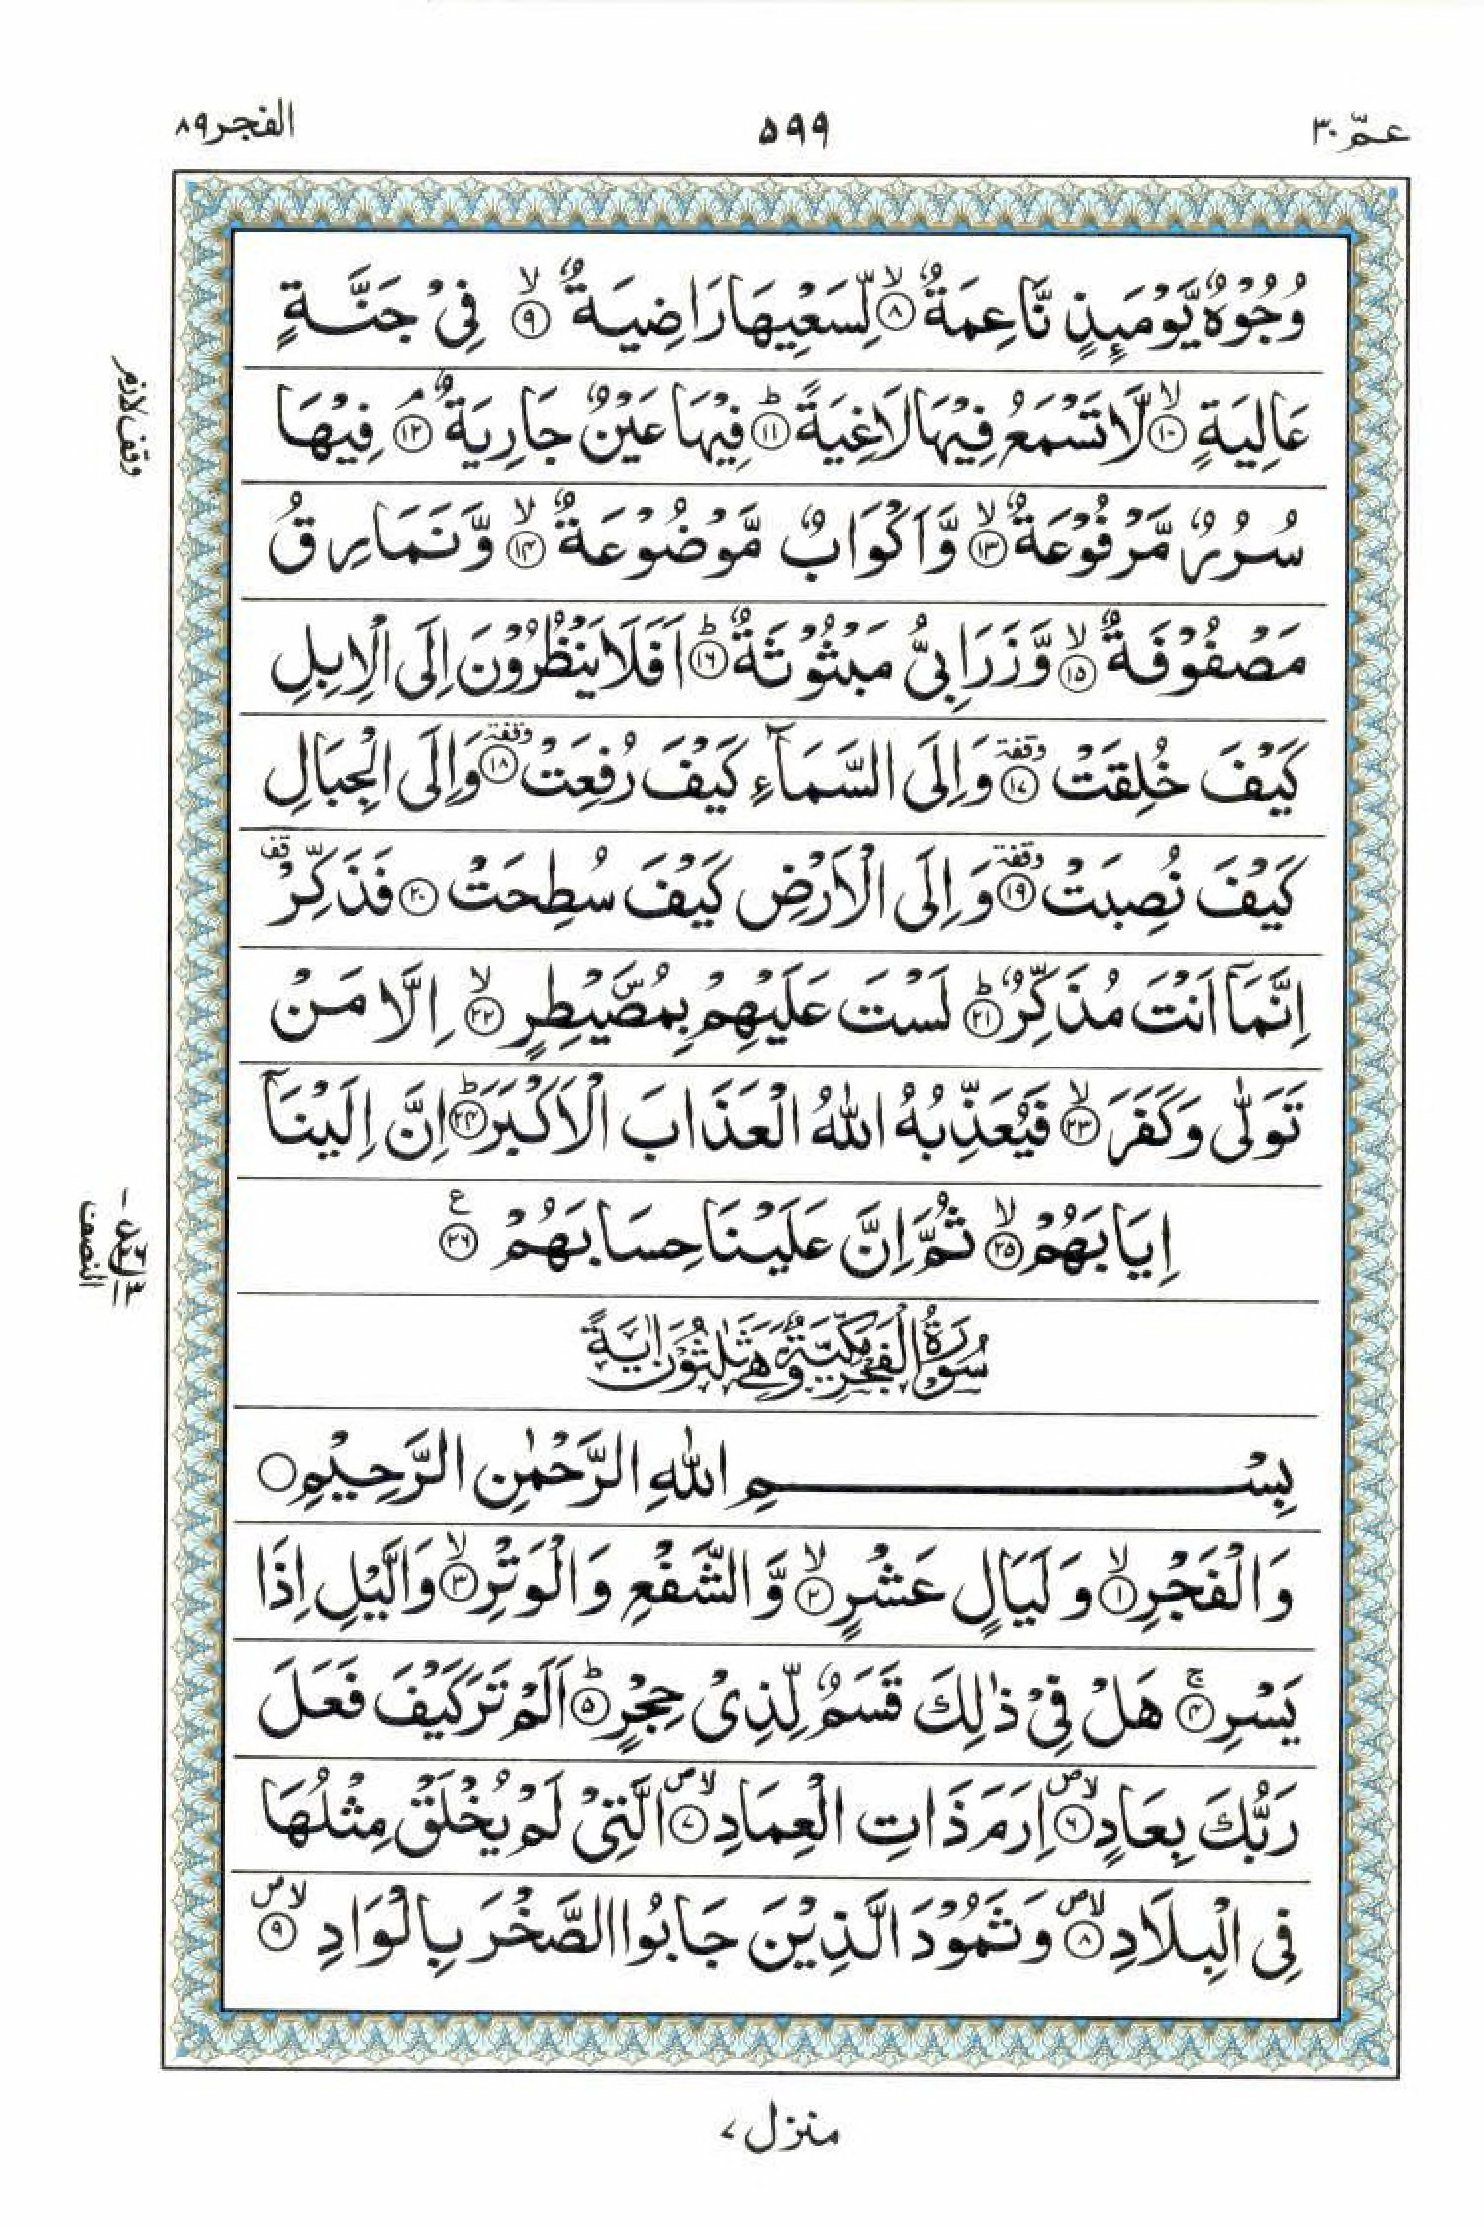 عمّ ٣٠
٥٩٩
الفجر ٨٩
وُجُوْهٌ يَّوْمَىِٕذٍ نَّاعِمَةٌ ۙ‏﴿۸﴾ لِّسَعْيِهَا رَاضِيَةٌ ۙ‏﴿۹﴾ فِىْ جَنَّةٍ
عَالِيَةٍ ۙ‏﴿۱۰﴾ لَّا تَسْمَعُ فِيْهَا لَاغِيَةً ؕ‏﴿۱۱﴾ فِيْهَا عَيْنٌ جَارِيَةٌ ۘ‏﴿۱۲﴾ فِيْهَا
وقف لازم
سُرُرٌ مَّرْفُوْعَةٌ ۙ‏﴿۱۳﴾ وَّاَكْوَابٌ مَّوْضُوْعَةٌ ۙ‏﴿۱۴﴾ وَّنَمَارِقُ
مَصْفُوْفَةٌ ۙ‏﴿۱۵﴾ وَّزَرَابِىُّ مَبْثُوْثَةٌ ؕ‏﴿۱۶﴾ اَفَلَا يَنْظُرُوْنَ اِلَى الْاِبِلِ
كَيْفَ خُلِقَتْ وقفة﴿۱۷﴾ وَاِلَى السَّمَآءِ كَيْفَ رُفِعَتْ وقفة﴿۱۸﴾ وَاِلَى الْجِبَالِ
كَيْفَ نُصِبَتْ وقفة﴿۱۹﴾ وَاِلَى الْاَرْضِ كَيْفَ سُطِحَتْ ﴿۲۰﴾ فَذَكِّرْ قف
اِنَّمَآ اَنْتَ مُذَكِّرٌ ؕ‏﴿۲۱﴾ لَسْتَ عَلَيْهِمْ بِمُصَۜيْطِرٍ ۙ‏﴿۲۲﴾ اِلَّا مَنْ
تَوَلّٰى وَكَفَرَ ۙ‏﴿۲۳﴾ فَيُعَذِّبُهُ اللّٰهُ الْعَذَابَ الْاَكْبَرَ ؕ‏﴿۲۴﴾ اِنَّ اِلَيْنَآ
اِيَابَهُمْ ۙ‏﴿۲۵﴾ ثُمَّ اِنَّ عَلَيْنَا حِسَابَهُمْ ع﴿۲۶﴾
النصف
سُوْرَةُ الْفَجْرِ مَكِّيَّةٌ وَّهِىَ ثَلٰثُوْنَ اٰيَةً
بِسْمِ اللّٰهِ الرَّحْمٰنِ الرَّحِيْمِ ○
وَالْفَجْرِ ۙ‏﴿۱﴾ وَلَيَالٍ عَشْرٍ ۙ‏﴿۲﴾ وَّالشَّفْعِ وَالْوَتْرِ ۙ‏﴿۳﴾ وَالَّيْلِ اِذَا
يَسْرِ ۚ‏﴿۴﴾ هَلْ فِىْ ذٰلِكَ قَسَمٌ لِّذِىْ حِجْرٍ ؕ‏﴿۵﴾ اَلَمْ تَرَ كَيْفَ فَعَلَ
رَبُّكَ بِعَادٍ لا ص﴿۶﴾ اِرَمَ ذَاتِ الْعِمَادِ لا ص﴿۷﴾ الَّتِىْ لَمْ يُخْلَقْ مِثْلُهَا
فِى الْبِلَادِ لا ص﴿۸﴾ وَثَمُوْدَ الَّذِيْنَ جَابُوا الصَّخْرَ بِالْوَادِ لا ص﴿۹﴾
منزل ٧